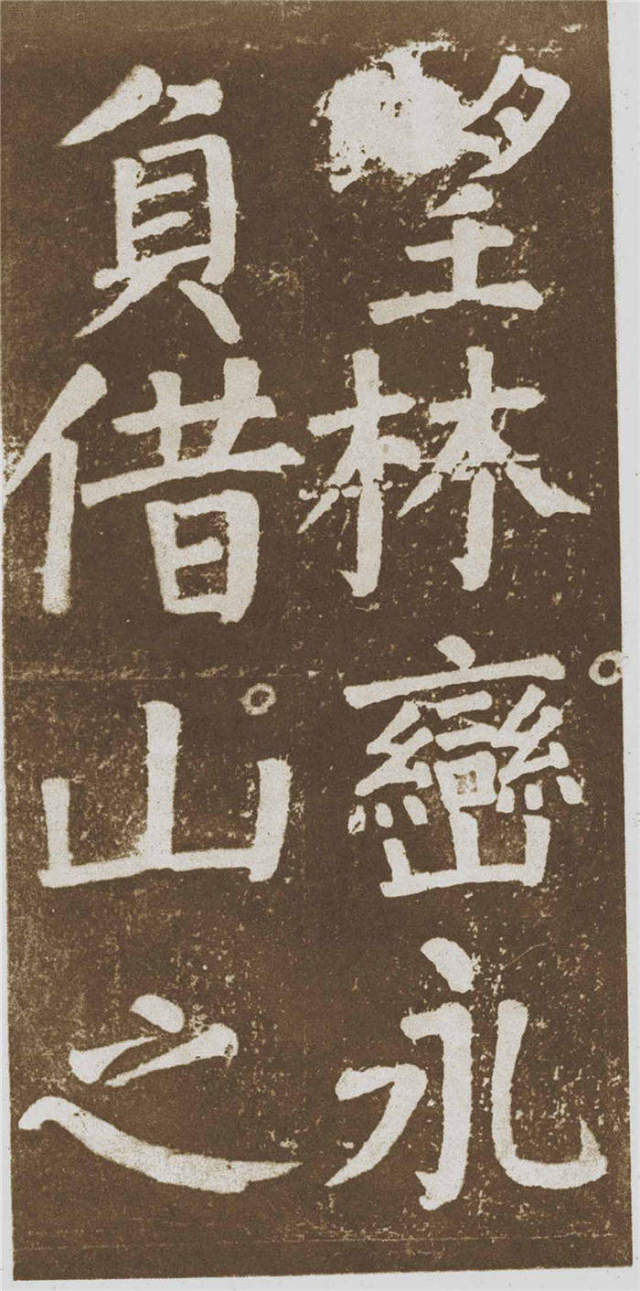 望林巒礼
負借山之